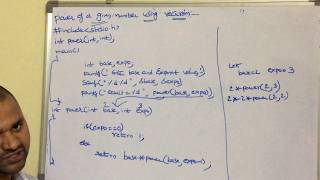 power of a given number using recursion
#include<stdio.h>
int power(int, int);
main()
{
int base, expo;
printf("enter base and exponent values");
scanf("%d %d", &base, &expo);
printf("result=%d", power(base, expo));
}
int power(int base, int expo)
2 3
{
if(expo==0)
return 1;
else
return base*power(base, expo-1);
}
Let
base=2 expo=3
2*power(2,3)
2*2*power(2,2)